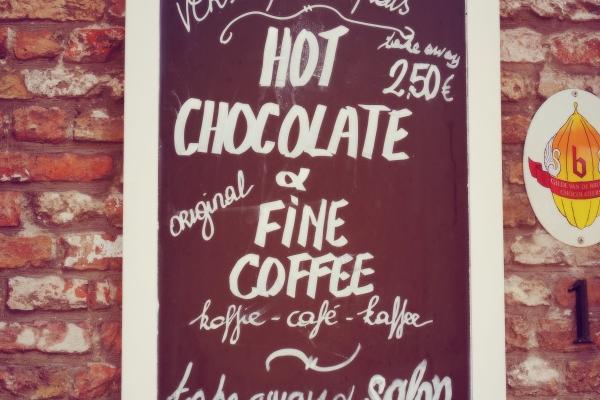 HOT
take away
2,50€
CHOCOLATE
&
original
FINE
COFFEE
koffie - café - kaffee
take away & salon
b
GILDE VAN DE
CHOCOLATIERS
1